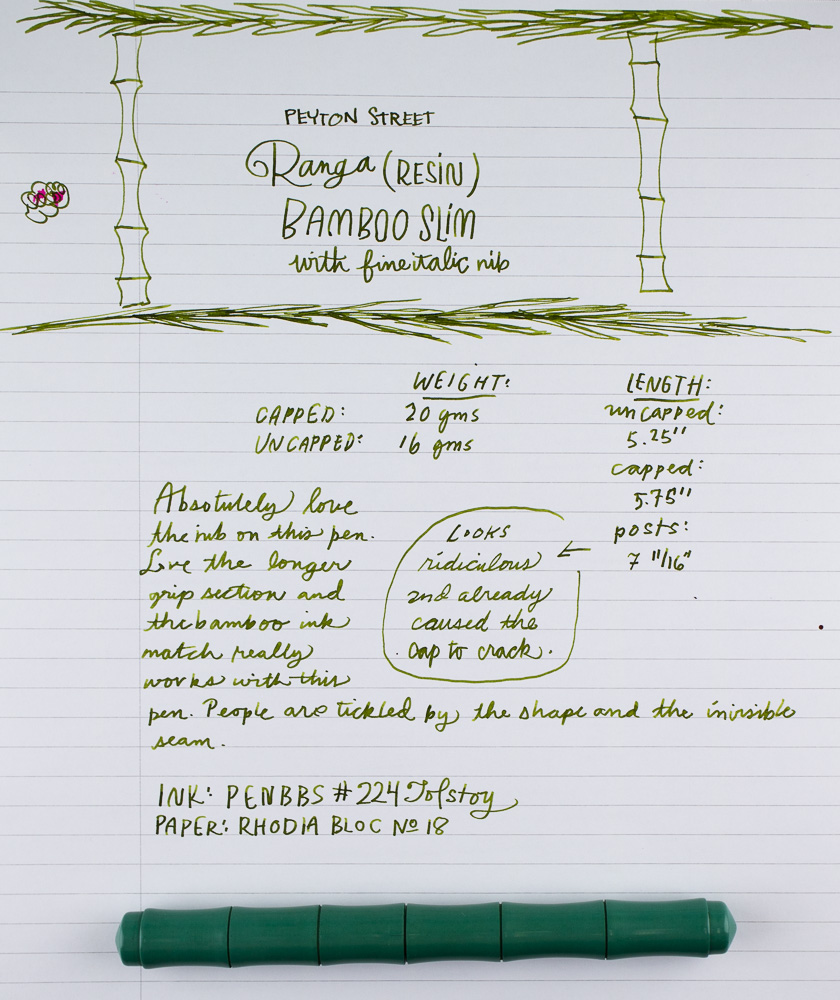 PEYTON STREET
Ranga (RESIN)
BAMBOO SLIM
with fine italic nib
WEIGHT:
CAPPED: 20 gms
UNCAPPED: 16 gms
LENGTH:
uncapped:
5.25"
capped:
5.75"
posts:
7 11/16"
Absolutely love
the nib on this pen.
Love the longer
grip section and
the bamboo ink
match really
works with this
pen. People are tickled by the shape and the invisible
seam.
LOOKS
ridiculous
and already
caused the
cap to crack.
INK: PENBBS #224 Tolstoy
PAPER: RHODIA BLOC Nº 18